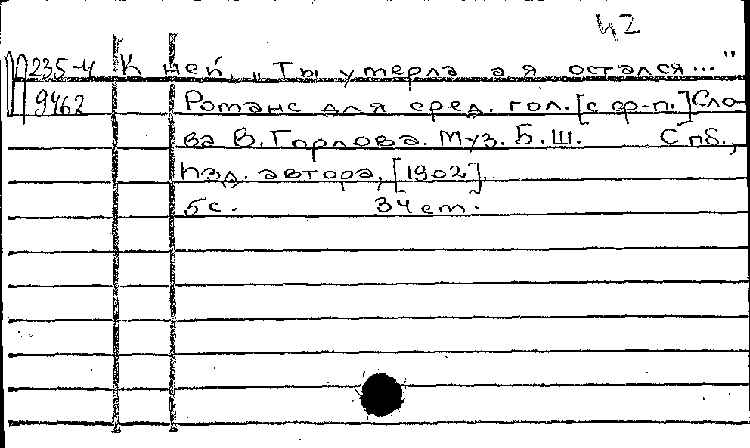 42
235-4 К ней. „Ты умерла а я остался..."
9462 Романс для сред. гол. [с ф-п.] Сло-
ва В. Горлова. Муз. Б. Ш. Спб.,
Изд. автора, [1902].
5 с. 34 cm.